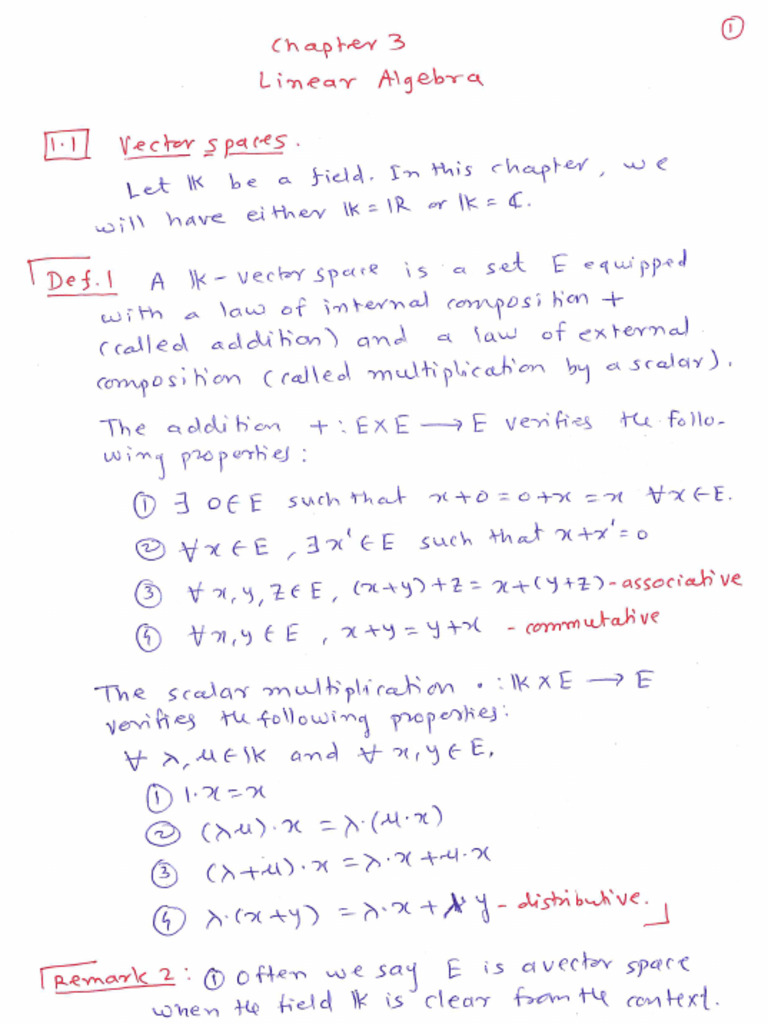 ①
Chapter 3
Linear Algebra
1.1 Vector spaces.
Let 𝕂 be a field. In this chapter, we
will have either 𝕂 = ℝ or 𝕂 = ℂ.
Def. 1 A 𝕂-vector space is a set E equipped
with a law of internal composition +
(called addition) and a law of external
composition (called multiplication by a scalar).
The addition + : E×E → E verifies the follo-
wing properties:
① ∃ 0∈E such that x+0=0+x=x ∀x∈E.
② ∀x∈E, ∃x'∈E such that x+x'=0
③ ∀x,y,z∈E, (x+y)+z=x+(y+z) - associative
④ ∀x,y∈E, x+y=y+x - commutative
The scalar multiplication · : 𝕂×E → E
verifies the following properties:
∀ λ,μ∈𝕂 and ∀ x,y∈E,
① 1·x=x
② (λμ)·x=λ·(μ·x)
③ (λ+μ)·x=λ·x+μ·x
④ λ·(x+y)=λ·x+λ·y - distributive.
Remark 2: ① Often we say E is a vector space
when the field 𝕂 is clear from the context.